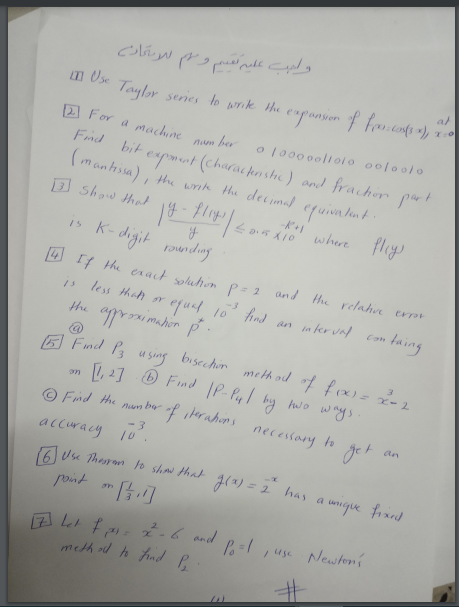 واجب
[1] Use Taylor series to write the expansion of f(x)=cos(3x), at x=0
[2] For a machine number 0 10000011010 0010010
Find bit exponent (characteristic) and fraction part
(mantissa), the write the decimal equivalent.
[3] Show that |y - fl(y) / y| ≤ 0.5 × 10^{-k+1} where fl(y)
is K-digit rounding.
[4] If the exact solution P = 2 and the relative error
is less than or equal 10^{-3} find an interval containg
the approximation p*.
[5] (a) Find P_3 using bisection method of f(x) = x^3 - 2
on [1, 2] (b) Find |P-P_4| by two ways.
(c) Find the number of iterations necessary to get an
accuracy 10^{-3}.
[6] Use Theorem to show that g(x) = 2^{-x} has a unique fixed
point on [1/3, 1]
[7] Let f(x) = x^2 - 6 and P_0 = 1, use Newton's
method to find P_2.
#